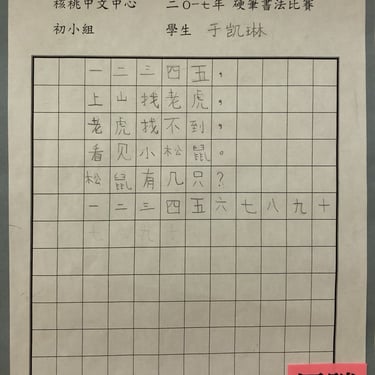 核桃中文中心 二〇一七年 硬筆書法比賽
初小組 學生 于凯琳
一二三四五，
上山找老虎，
老虎找不到，
看见小松鼠。
松鼠有几只？
一二三四五六七八九十
七八九十